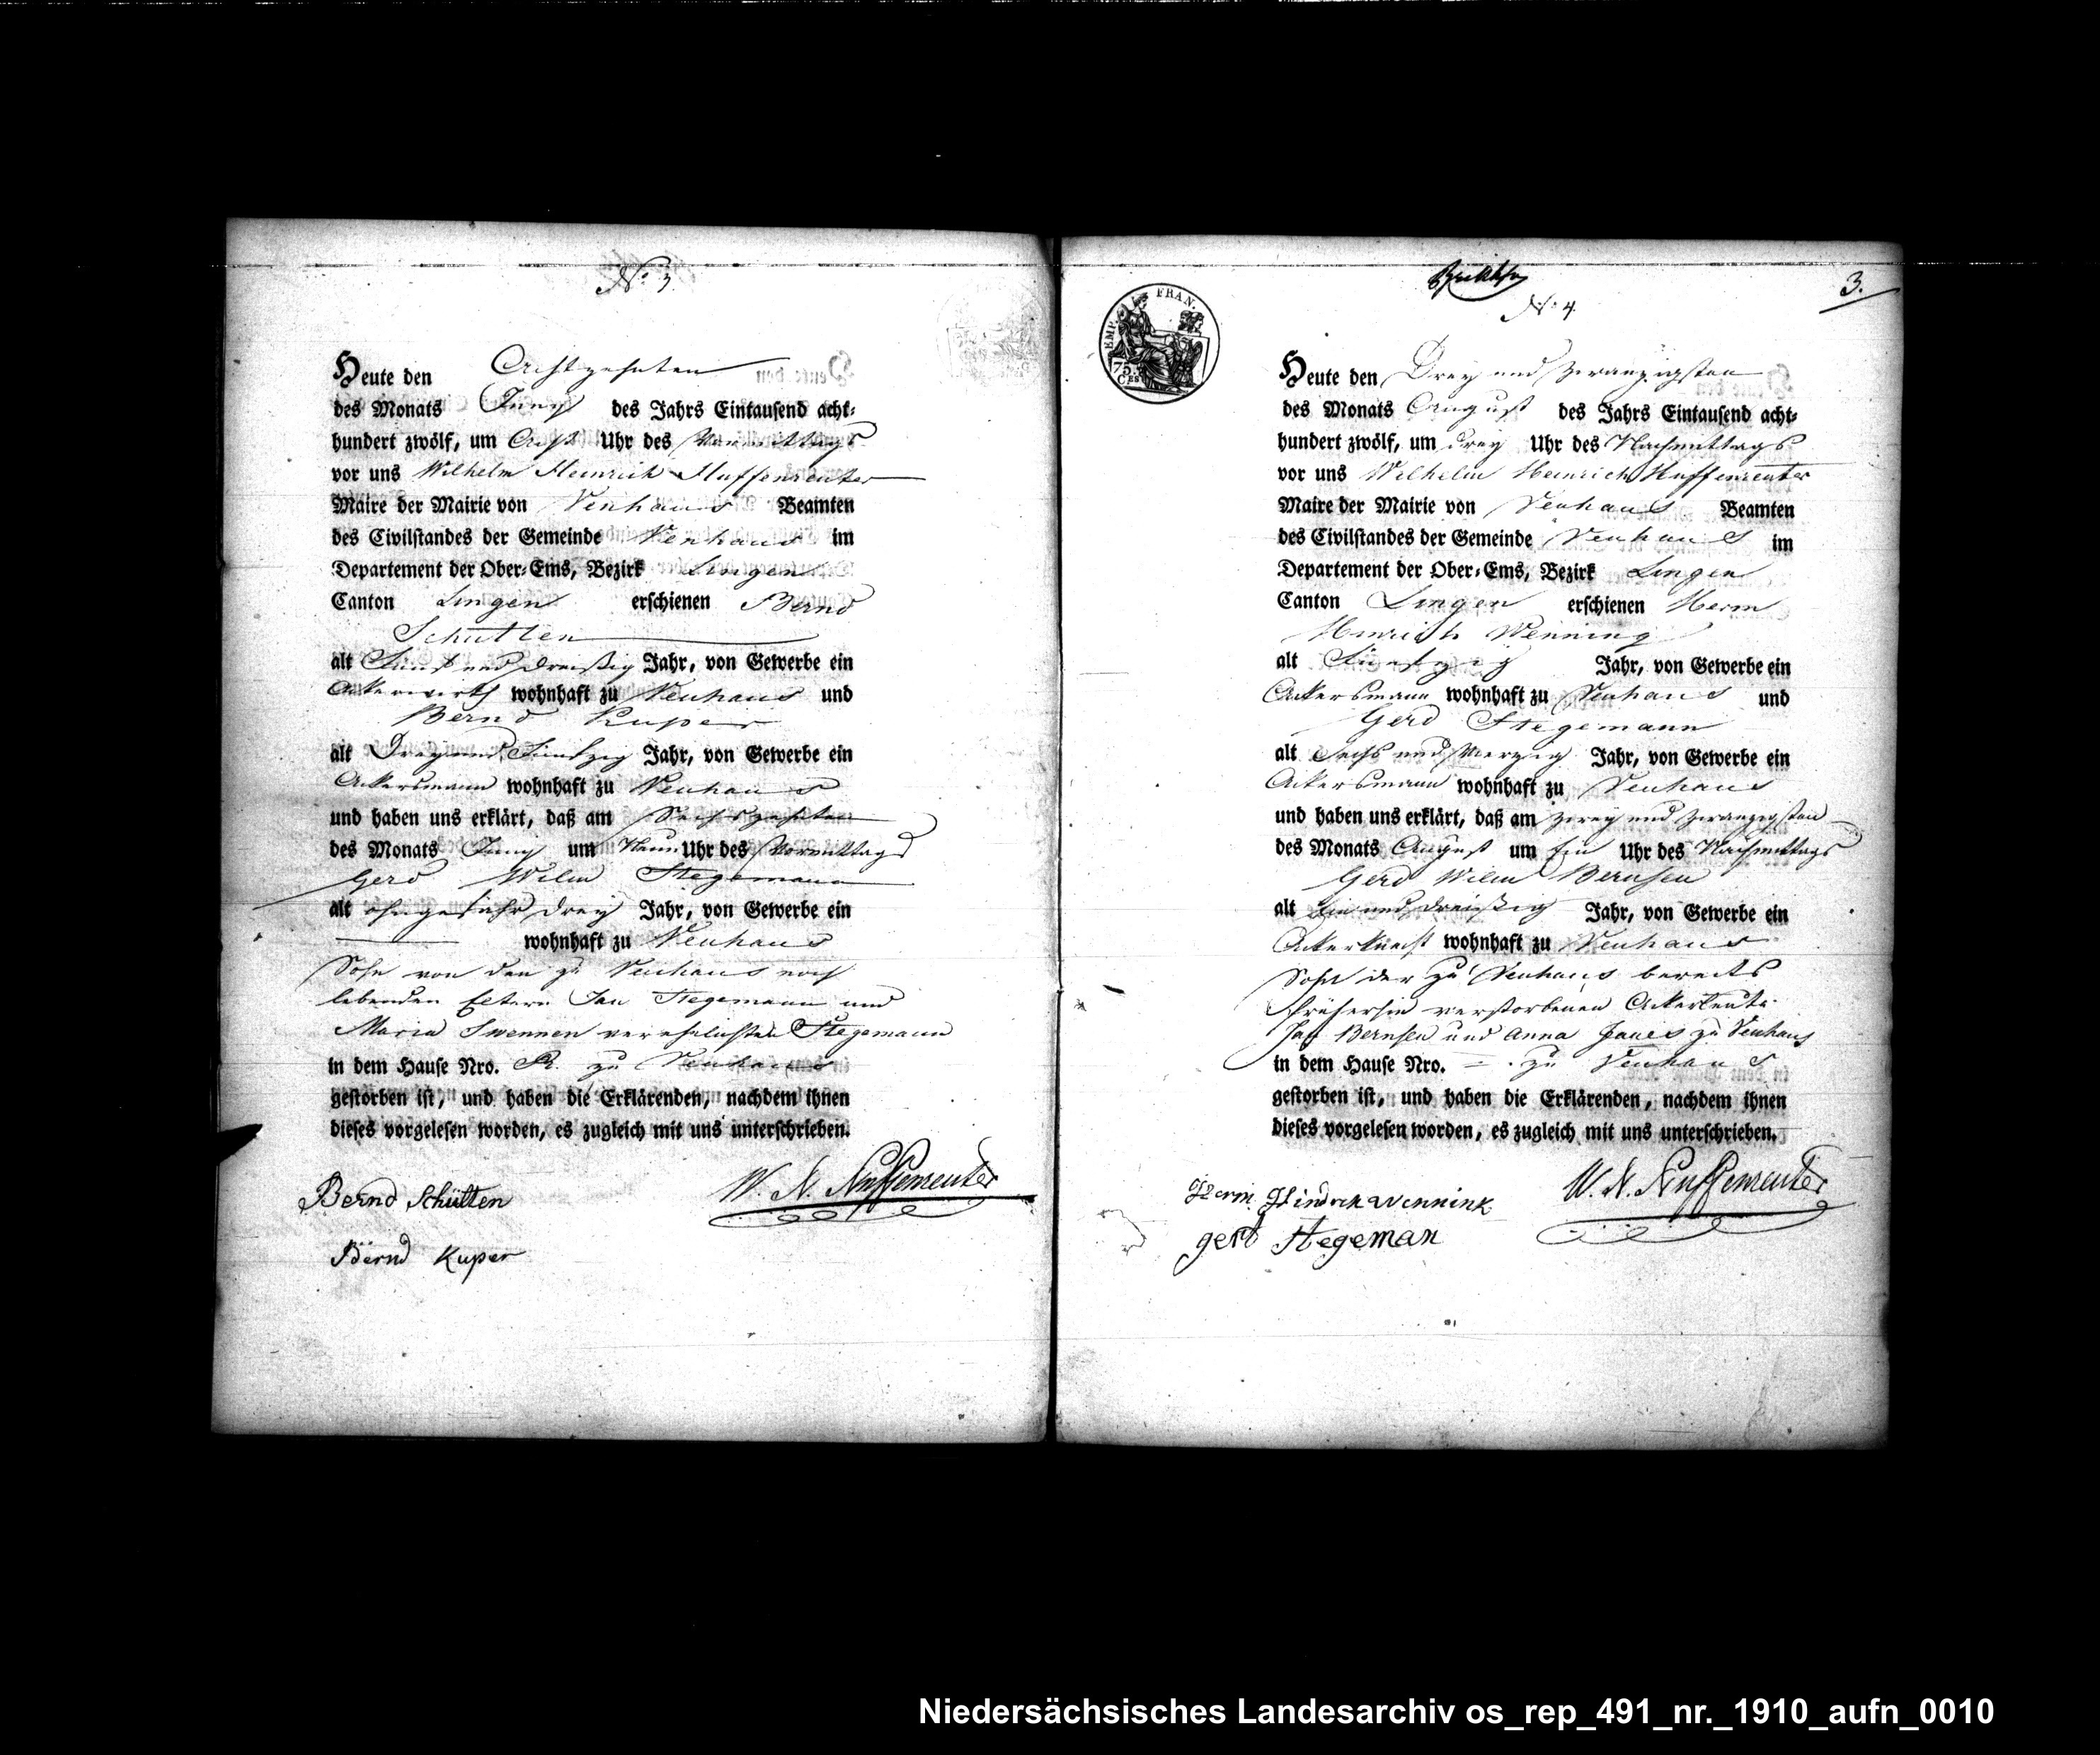 No. 3
Heute den Achtzehnten
des Monats Juny des Jahrs Eintausend acht-
hundert zwölf, um Acht Uhr des Vormittags
vor uns Wilhelm Heinrich Huffenreuter
Maire der Mairie von Venhaus Beamten
des Civilstandes der Gemeinde Venhaus im
Departement der Ober-Ems, Bezirk Lingen
Canton Lingen erschienen Bernd
Schutten
alt Fünf und dreißig Jahr, von Gewerbe ein
Ackerwirth wohnhaft zu Venhaus und
Bernd Kuper
alt Drey und Funfzig Jahr, von Gewerbe ein
Ackersmann wohnhaft zu Venhaus
und haben uns erklärt, daß am Sechszehnten
des Monats Juny um Neun Uhr des Vormittags
Gerd Wilm Stegemann
alt ohngefähr drey Jahr, von Gewerbe ein
wohnhaft zu Venhaus
Sohn von den zu Venhaus noch
lebenden Eltern Jan Stegemann und
Maria Swennen verehelichten Stegemann
in dem Hause Nro. zu Venhaus
gestorben ist, und haben die Erklärenden, nachdem ihnen
dieses vorgelesen worden, es zugleich mit uns unterschrieben.
Bernd Schütten W. H. Huffenreuter
Bernd Kuper
3.
No. 4
EMP. FRAN.
75 CES
Heute den Drey und zwanzigsten
des Monats August des Jahrs Eintausend acht-
hundert zwölf, um drey Uhr des Nachmittags
vor uns Wilhelm Heinrich Huffenreuter
Maire der Mairie von Venhaus Beamten
des Civilstandes der Gemeinde Venhaus im
Departement der Ober-Ems, Bezirk Lingen
Canton Lingen erschienen Herm
Hinrich Wenning
alt Funfzig Jahr, von Gewerbe ein
Ackersmann wohnhaft zu Venhaus und
Gerd Stegemann
alt Sechs und Vierzig Jahr, von Gewerbe ein
Ackersmann wohnhaft zu Venhaus
und haben uns erklärt, daß am zwey und zwanzigsten
des Monats August um Ein Uhr des Nachmittags
Gerd Wilm Bernsen
alt Ein und dreißig Jahr, von Gewerbe ein
Ackerknecht wohnhaft zu Venhaus
Sohn der zu Venhaus bereits
früherhin verstorbenen Ackerleute
Jan Bernsen und Anna Janes zu Venhaus
in dem Hause Nro. — zu Venhaus
gestorben ist, und haben die Erklärenden, nachdem ihnen
dieses vorgelesen worden, es zugleich mit uns unterschrieben.
Herm Hindrik Wennink W. H. Huffenreuter
gert Stegeman
Niedersächsisches Landesarchiv os_rep_491_nr._1910_aufn_0010